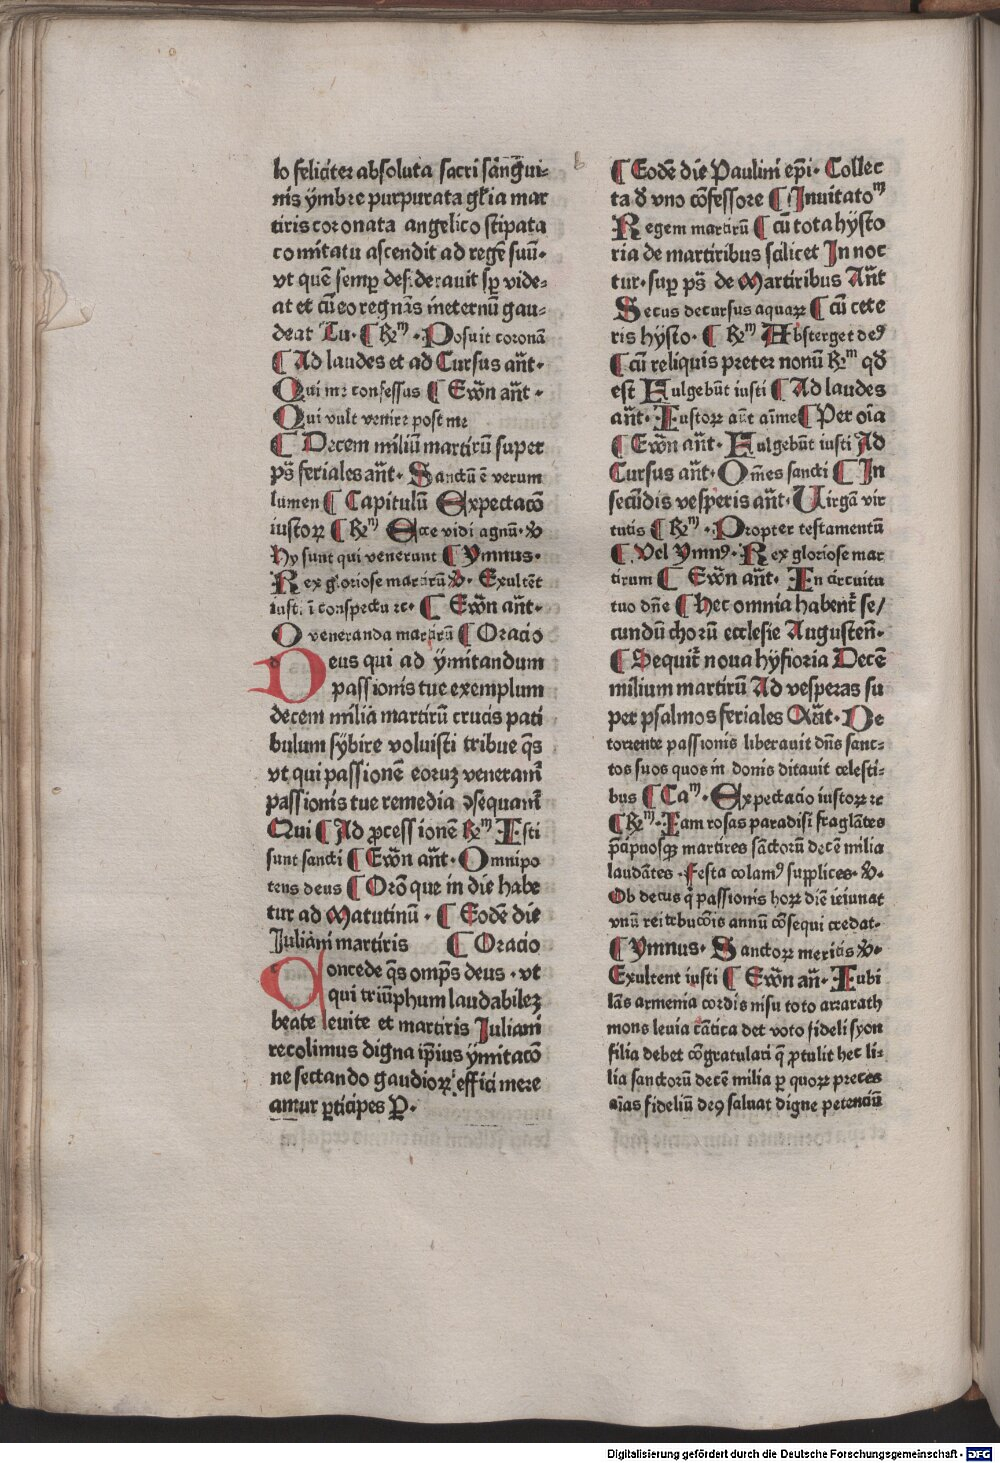 lo felicitez absoluta sacri sāgui-
nis ymbre purpurata gl̄ia mar
tiris coronata angelico stipata
comitatu ascendit ad regē suū·
vt quē semp̱ desiderauit sp̱ vide-
at et cū eo regnās ineternū gau-
deat Tu · ¶ R̄m · Posuit coronā
¶ Ad laudes et ad Cursus añt·
Qui me confessus ¶ Ewañ añt ·
Qui vult venire post me
¶ Decem miliū martirū super
ps̄ feriales añt· Sanctū ē verum
lumen ¶ Capitulū Expectacō
iustoꝝ ¶ R̄m Ecce vidi agnū· v̄
Hy sunt qui venerunt ¶ Ymnus·
Rex gloriose martirū v̄· Exultēt
iusti ī conspectu ꝛc· ¶ Ewañ añt·
O veneranda martirū ¶ Oracio
Deus qui ad ymitandum
passionis tue exemplum
decem milia martirū crucis pati
bulum sybire voluisti tribue q̄s
vt qui passionē eoruꝫ veneram̄
passionis tue remedia ꝯsequam̄
Qui ¶ Ad ꝓcessionē R̄m Isti
sunt sancti ¶ Ewañ añt· Omnipo
tens deus ¶ Orō que in die habe
tur ad Matutinū · ¶ Eodē die
Juliani martiris ¶ Oracio
Concede q̄s omp̄s deus · vt
qui triūphum laudabileꝫ
beate leuite et martiris Juliani
recolimus digna ip̄ius ymitacō
ne sectando gaudioꝝ effici mere
amur ꝑticipes Ꝑ·
b
¶ Eodē die Paulini ep̄i· Collec
ta ꝺ vno cōfessore ¶ Inuitatom
Regem martirū ¶ cū tota hysto
ria de martiribus scilicet In noc
tur· sup̱ ps̄ de Martiribus Añt
Secus decursus aquaꝝ ¶ cū cete
ris hysto· ¶ R̄m Absterget deꝰ
¶ cū reliquis preter nonū R̄m qꝺ
est Fulgebūt iusti ¶ Ad laudes
añt· Iustoꝝ aūt aīme ¶ Per oīa
¶ Ewañ añt· Fulgebūt iusti Ad
Cursus añt· Om̄es sancti ¶ In
secūdis vesperis añt· Uirgā vir
tutis ¶ R̄m · Propter testamentū
¶ Vel Ymnꝰ· Rex gloriose mar
tirum ¶ Ewañ añt· In circuitu
tuo dn̄e ¶ Hec omnia habent̄ se/
cundū chorū ecclesie Augusten̄·
¶ Sequit̄ noua hyſtoria Decē
milium martirū Ad vesperas su
per psalmos feriales Añt· De
torrente passionis liberauit dn̄s sanc-
tos suos quos in donis ditauit celesti-
bus ¶ Cam· Expectacio iustoꝝ ꝛc
¶ R̄m· Iam rosas paradisi fraglātes
p̄cipuosqꝫ martires sāctorū decē milia
laudātes · Festa colamꝰ supplices· v̄·
Ob decus q̄ passionis horꝝ diē ieiunat
vnū rei tebucōis annū cōsequi credat·
¶ Ymnus· Sanctoꝝ meritis v̄·
Exultent iusti ¶ Ewañ añ· Iubi
lās armenia cordis nisu toto ararath
mons leuia cātica det voto fideli syon
filia debet cōgratulari q̄ ꝓtulit hec li-
lia sanctorū decē milia ꝑ quoꝝ preces
aīas fideliū deꝰ saluat digne petenciū
Digitalisierung gefördert durch die Deutsche Forschungsgemeinschaft - DFG